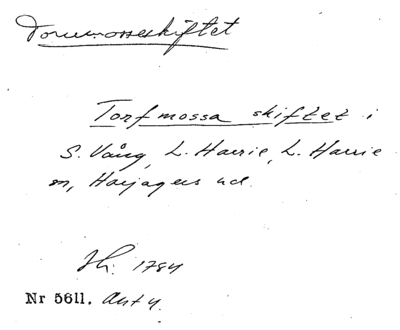 Torvmosseskiftet
Torfmossa skiftet i
S. Vång, L. Harrie, L. Harrie
sn, Harjagers hd.
1784
Nr 5611. Akt 4.